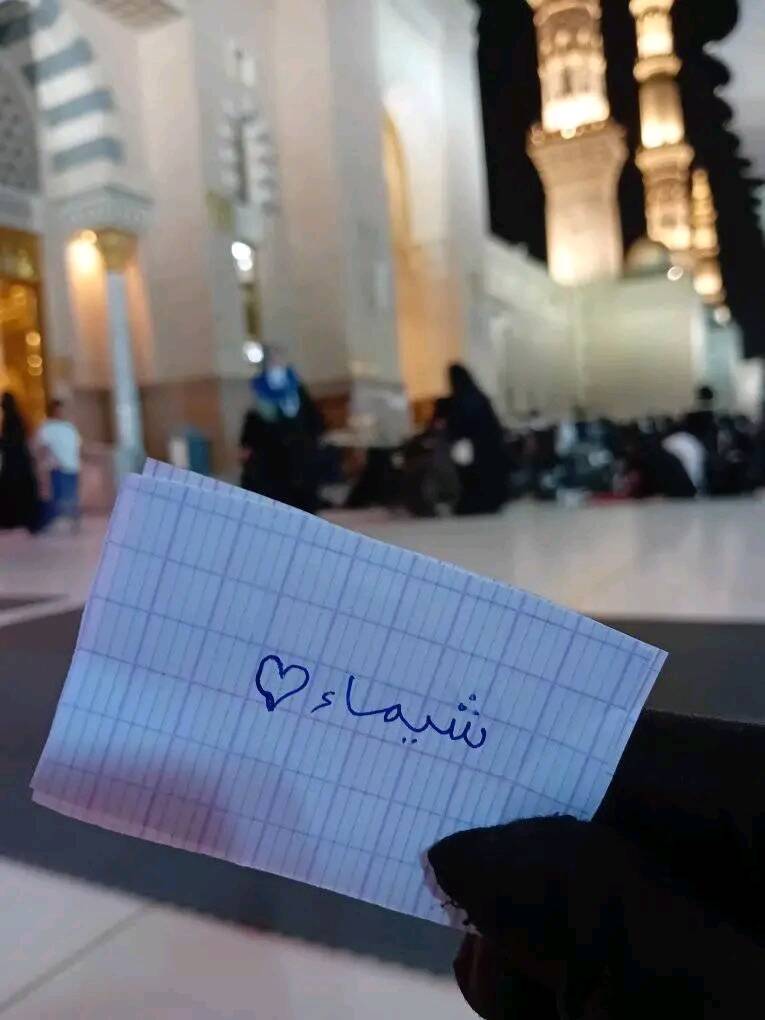 شيماء♡